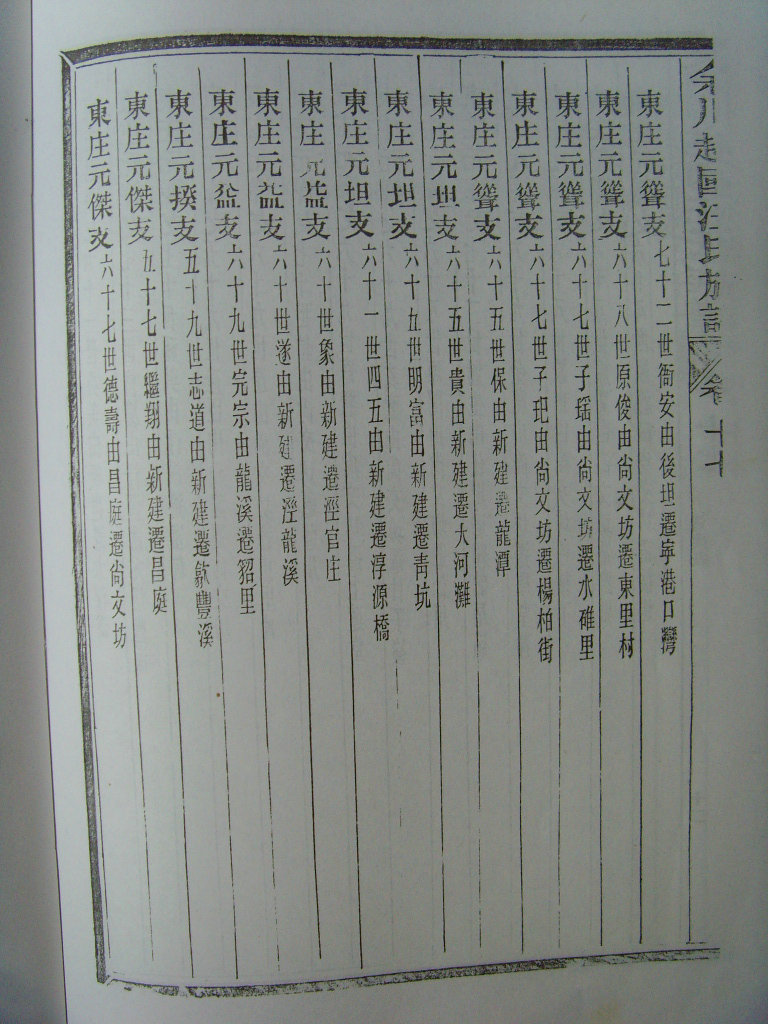 余川越國汪氏族譜 卷十七
東庄元聳支七十二世衙安由後坦遷寧港口灣
東庄元聳支六十八世原俊由尙文坊遷東里村
東庄元聳支六十七世子瑶由尙文坊遷水碓里
東庄元聳支六十七世子玘由尙文坊遷楊柏街
東庄元聳支六十五世保由新建遷龍潭
東庄元坦支六十五世貴由新建遷大河灘
東庄元坦支六十五世明富由新建遷靑坑
東庄元坦支六十一世四五由新建遷淳源橋
東庄元益支六十世象由新建遷涇官庄
東庄元益支六十世遂由新建遷涇龍溪
東庄元益支六十九世完宗由龍溪遷貂里
東庄元揆支五十九世志道由新建遷歙豐溪
東庄元傑支五十七世繼翔由新建遷昌庭
東庄元傑支六十七世德壽由昌庭遷尙文坊